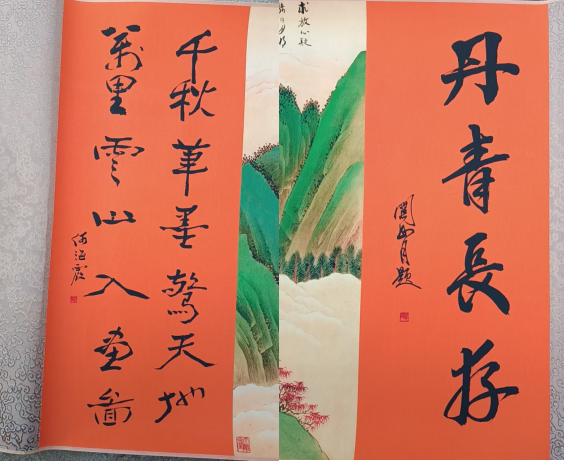 丹青長存
關山月題
千秋筆墨驚天地
萬里雲山入畫圖
何海霞